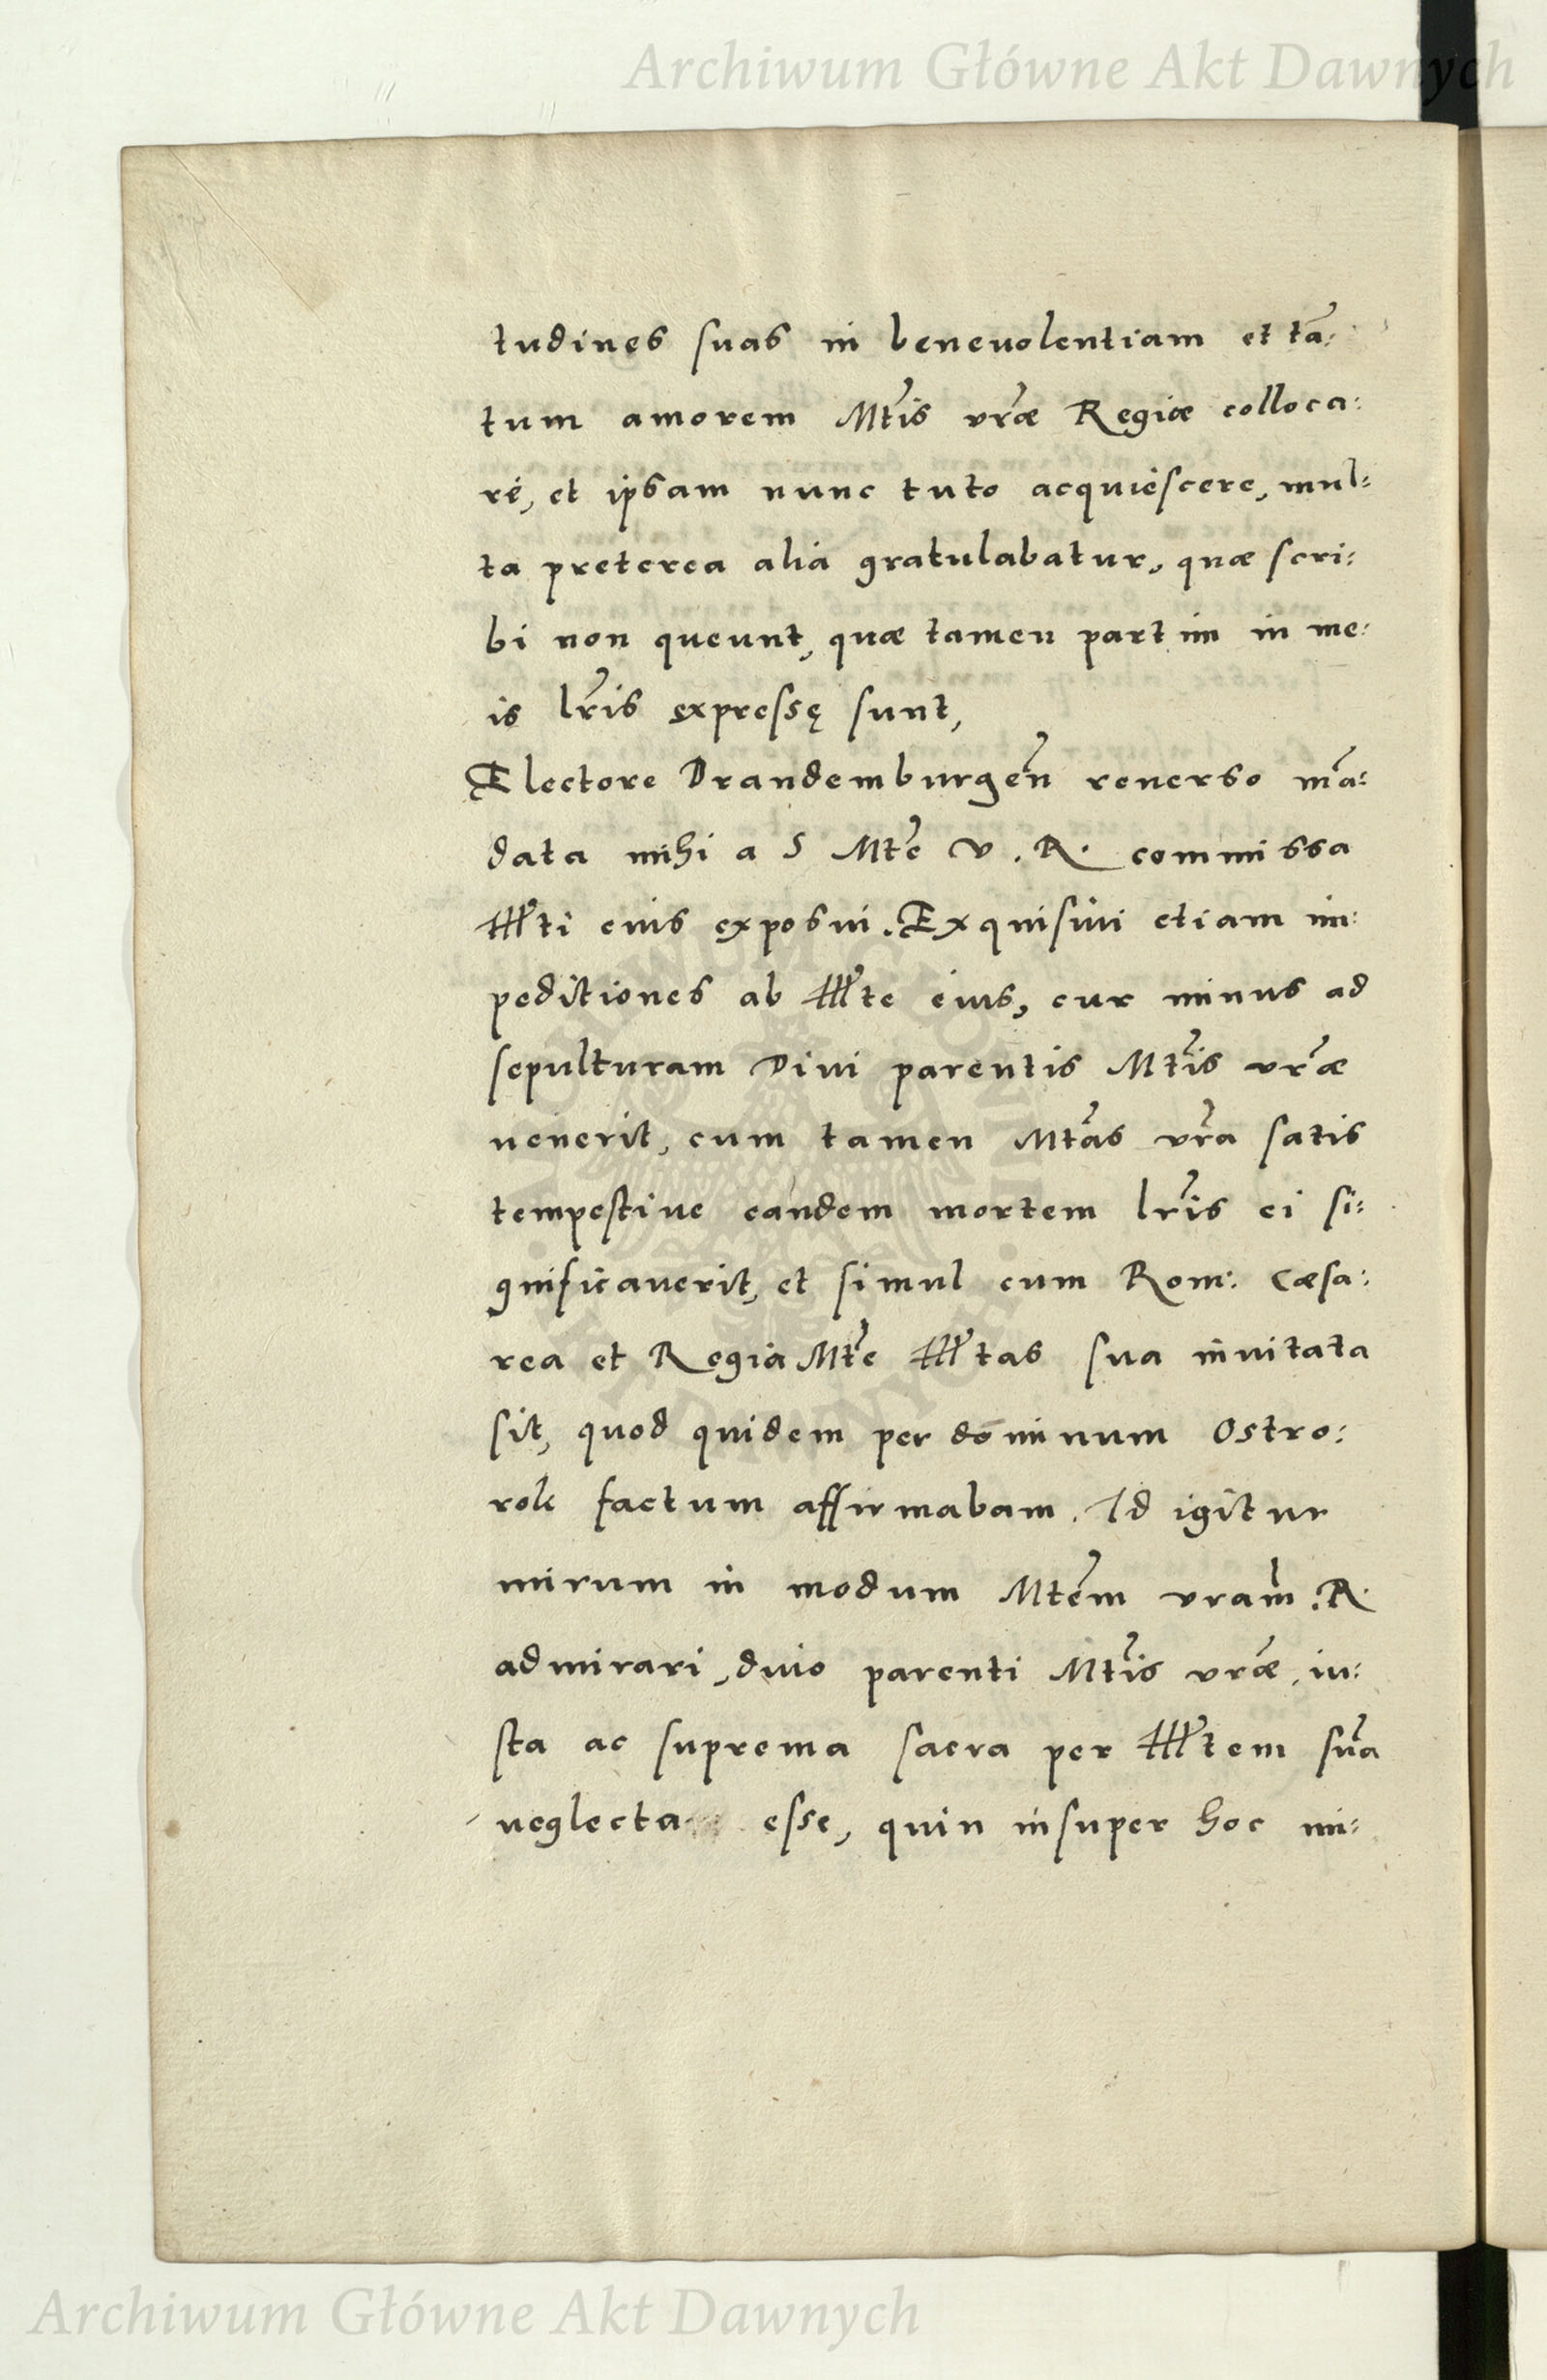 Archiwum Główne Akt Dawnych
tudines suas in beneuolentiam et tā:
tum amorem Mtis vrae Regiae colloca:
re, et ipsam nunc tuto acquiescere, mul:
ta preterea alia gratulabatur, quae scri:
bi non queunt, quae tamen partim in me:
is lris expressę sunt,
Electore Brandemburgen reuerso mā:
data mihi a S Mte V. R. commissa
Illti eius exposui. Exquisiui etiam im:
peditiones ab Illte eius, cur minus ad
sepulturam Diui parentis Mtis vrae
uenerit, cum tamen Mtas vra satis
tempestiue eandem mortem lris ei si:
gnificauerit, et simul cum Rom: Caesa:
rea et Regia Mte Illtas sua inuitata
sit, quod quidem per dominum Ostro:
rok factum affirmabam. Id igitur
mirum in modum Mtem vram. R.
admirari, diuo parenti Mtis vrae, iu:
sta ac suprema sacra per Illtem suā
neglecta esse, quin insuper hoc mi:
Archiwum Główne Akt Dawnych